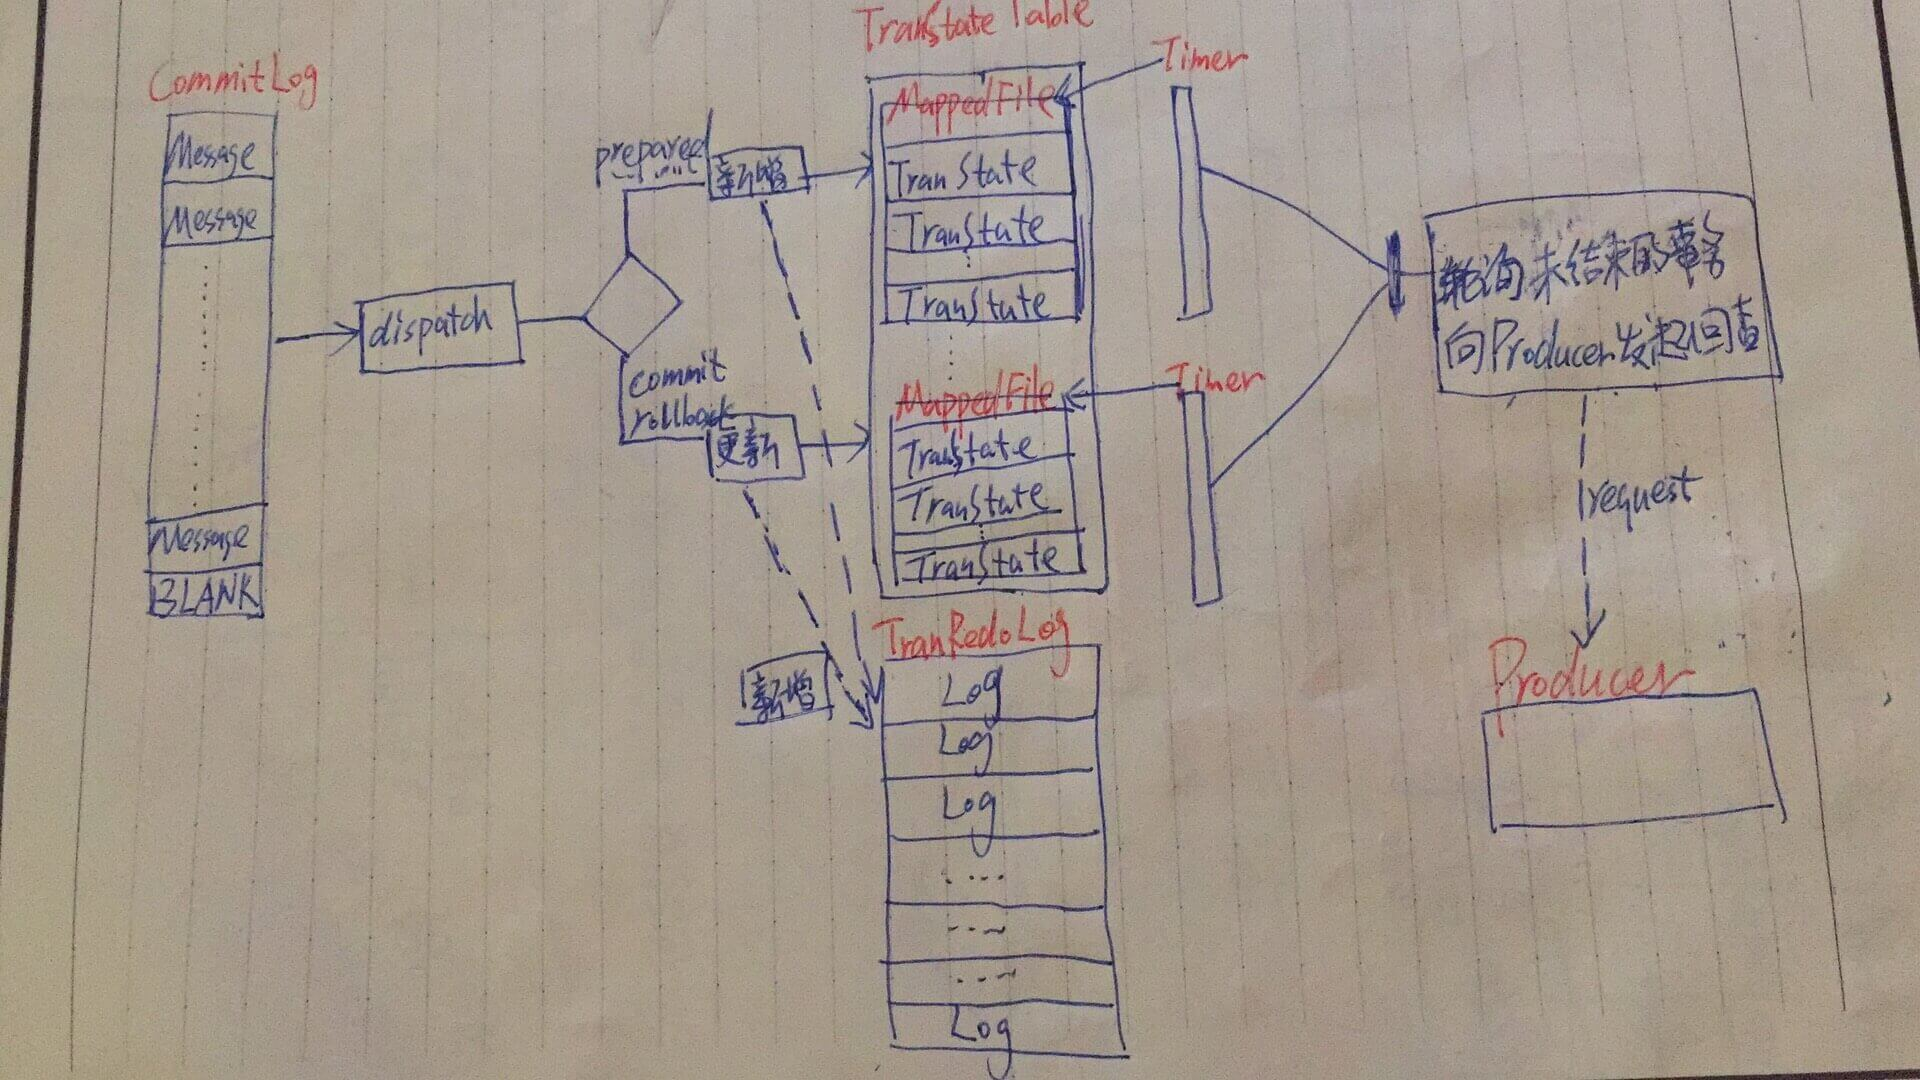 CommitLog
Message
Message
Message
BLANK
dispatch
prepared
新增
commit
rollback
更新
新增
TranStateTable
MappedFile
TranState
TranState
TranState
MappedFile
TranState
TranState
TranState
TranRedoLog
Log
Log
Log
Log
Timer
Timer
轮询未结束的事务
向Producer发起回查
request
Producer